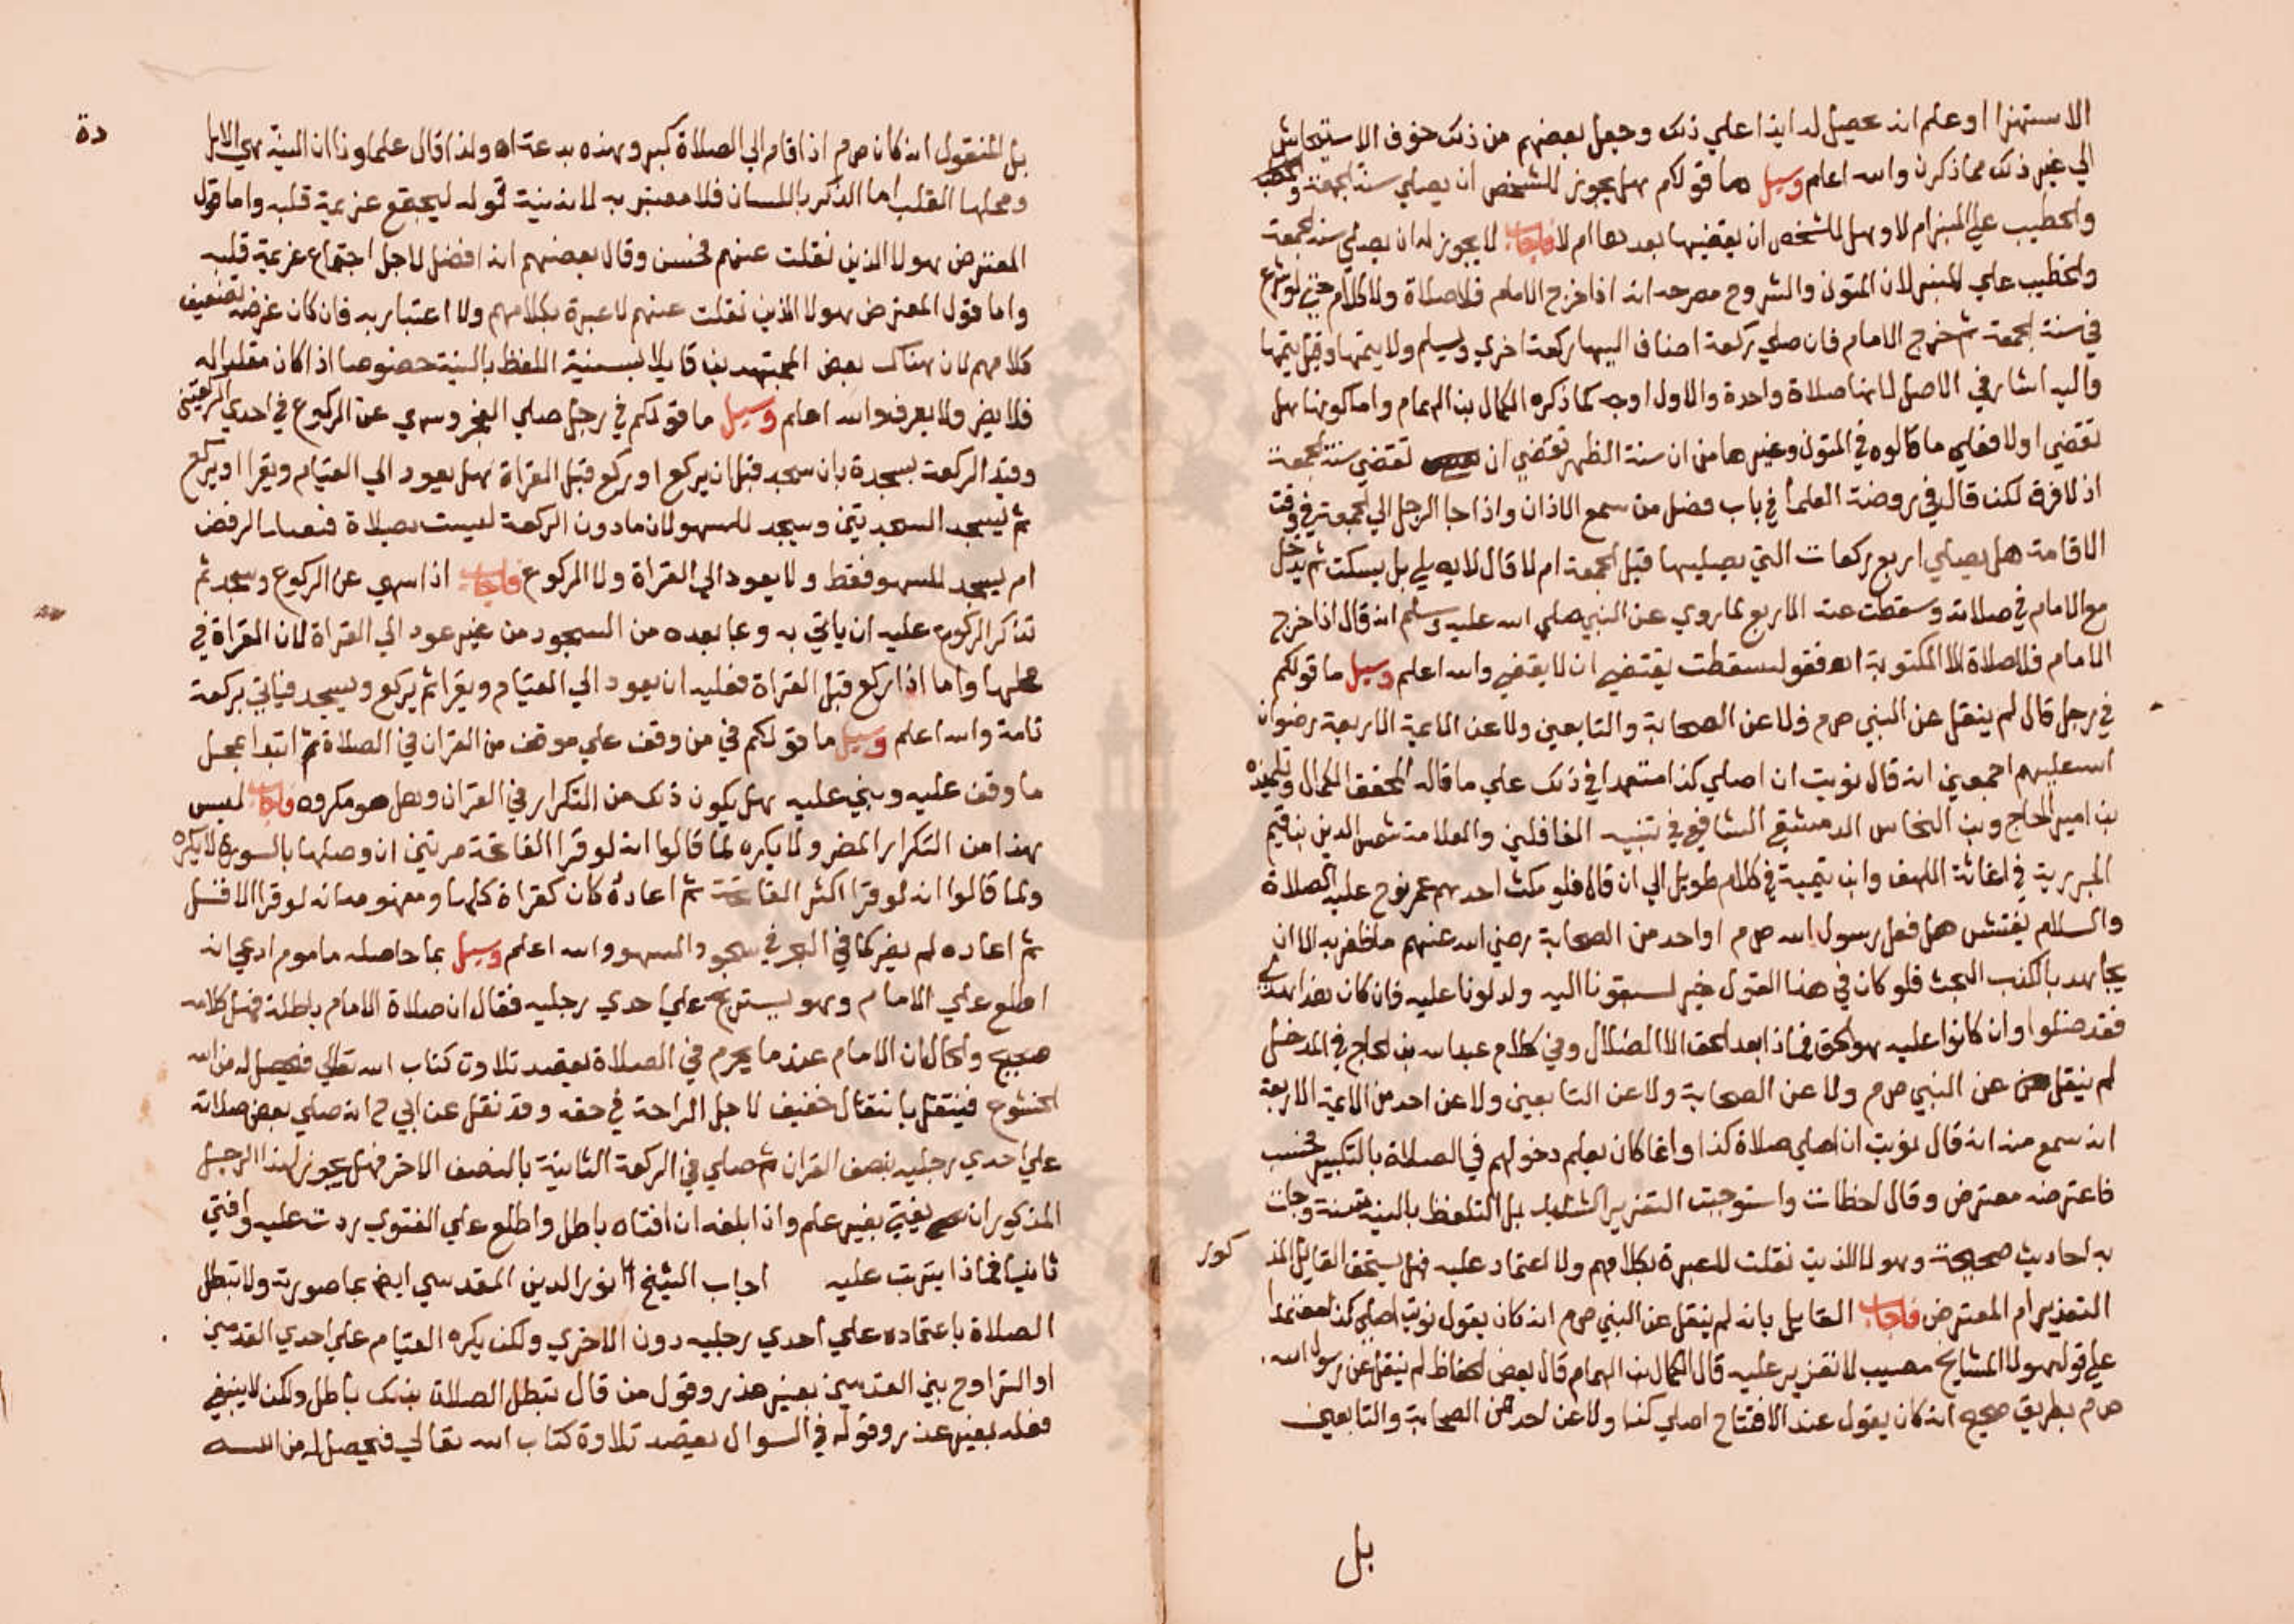 الاستهزا او علم انه يحصل له ايذا علي ذلك وجعل بعضهم من ذلك خوف الاستيحاش
الي غير ذلك مما ذكرن والله اعلم وسيل ما قولكم هل يجوز للشخص ان يصلي سنة الجمعة
والخطيب علي المنبر ام لا وهل للشخص ان يقضيها بعدها ام لا فاجاب لا يجوز له ان يصلي سنة الجمعة
والخطيب علي المنبر لان المتون والشروح مصرحه انه اذا خرج الامام فلا صلاة ولا كلام حتي لو شرع
في سنة الجمعة ثم خرج الامام فان صلي ركعة اضاف اليها ركعة اخري ويسلم ولا يتمها وقيل يتمها
واليه اشار في الاصل لانها صلاة واحدة والاول اوجه كما ذكره الكمال بن الهمام واما كونها هل
تقضي اولا فعلي ما قالوه في المتون وغيرها من ان سنة الظهر تقضي ان تقضي سنة الجمعة
اذ لا فرق لكن قال في روضة العلما في باب فضل من سمع الاذان واذا جا الرجل الي الجمعة في وقت
الاقامة هل يصلي اربع ركعات التي يصليها قبل الجمعة ام لا قال لا يصلي بل يسكت ثم يدخل
مع الامام في صلاته وسقطت عنه الاربع لما روي عن النبي صلي الله عليه وسلم انه قال اذا خرج
الامام فلا صلاة الا المكتوبة اه فقوله سقطت يقتضي ان لا يقضي والله اعلم وسيل ما قولكم
في رجل قال لم ينقل عن النبي ص م ولا عن الصحابة والتابعين ولا عن الايمة الاربعة رضوان
الله عليهم اجمعين انه قال نويت ان اصلي كذا معتمدا في ذلك علي ما قاله المحقق الكمال وتلميذه
بن امير الحاج وبن النحاس الدمشقي الشافعي في تنبيه الغافلين والعلامة شمس الدين بن قيم
الجوزية في اغاثة اللهف وابن تيمية في كلام طويل الي ان قال فلو مكث احدهم عمر نوح عليه الصلاة
والسلام يفتش هل فعل رسول الله ص م او احد من الصحابة رضي الله عنهم ما ظفر به الا ان
يجاهد بالكذب البحت فلو كان في هذا القول خير لسبقونا اليه ولدلونا عليه فان كان هذا هدي
فقد ضلوا وان كانوا عليه هو الحق فماذا بعد الحق الا الضلال وفي كلام عبد الله بن الحاج في المدخل
لم ينقل عن النبي ص م ولا عن الصحابة ولا عن التابعين ولا عن احد من الايمة الاربعة
انه سمع منه انه قال نويت ان اصلي صلاة كذا وانما كان يعلم دخولهم في الصلاة بالتكبير فحسب
فاعترضه معترض وقال اخطات واستوجبت التعزير الشديد بل التلفظ بالنية سنة وجات
به احاديث صحيحة وهولا الذين نقلت لا عبرة بكلامهم ولا اعتماد عليه فهل يستحق القايل المذ كور
التعزير ام المعترض فاجاب القايل بانه لم ينقل عن النبي ص م انه كان يقول نويت اصلي كذا معتمدا
علي قول هولا المشايخ مصيب لا تعزير عليه قال الكمال بن الهمام قال بعض الحفاظ لم ينقل عن رسول الله
ص م بطريق صحيح انه كان يقول عند الافتتاح اصلي كذا ولا عن احد من الصحابة والتابعين
بل
دة
بل المنقول انه كان ص م اذا قام الي الصلاة كبر وهذه بدعة اه ولذا قال علماونا ان النية هي الاول
ومحلها القلب اما الذكر باللسان فلا معتبر به لانه نية قوله ليجتمع عزيمة قلبه واما قول
المعترض هولا الذين نقلت عنهم فحسن وقال بعضهم انه افضل لاجل اجتماع عزيمة قلبه
واما قول المعترض هولا الذين نقلت عنهم لا عبرة بكلامهم ولا اعتبار به فان كان غرضه تضعيف
كلامهم لان هناك بعض المجتهدين قايلا بسنية اللفظ بالنية خصوصا اذا كان مقلدا له
فلا يضر ولا يعرف والله اعلم وسيل ما قولكم في رجل صلي الفجر وسهي عن الركوع في احدي الركعتين
وقيد الركعة بسجدة بان سجد قبل ان يركع او ركع قبل القراة هل يعود الي القيام ويقرا او يركع
ثم يسجد السجدتين وسجد للسهو لان ما دون الركعة ليست بصلاة الرفض
ام يسجد للسهو فقط ولا يعود الي القراة ولا الركوع فاجاب اذا سهي عن الركوع وسجد ثم
تذكر الركوع عليه ان ياتي به وبما بعده من السجود من غير عود الي القراة لان القراة في
محلها واما اذا ركع قبل القراة فعليه ان يعود الي القيام ويقرا ثم يركع ويسجد فياتي بركعة
تامة والله اعلم وسيل ما قولكم في من وقف علي موقف من القران في الصلاة ثم ابتدا بمحل
ما وقف عليه وبني عليه هل يكون ذلك من التكرار في القران وهل هو مكروه فاجاب ليس
هذا من التكرار المضر ولا يكره لما قالوا انه لو قرا الفاتحة مرتين ان وصلها بالسورة لا يكره
ولما قالوا انه لو قرا اكثر الفاتحة ثم اعاده كان كقراة كلها ومفهومه انه لو قرا الاقل
ثم اعاده لم يضر كما في البحر في سجود السهو والله اعلم وسيل بما حاصله ماموم ادعي انه
اطلع علي الامام وهو يستريح علي احدي رجليه فقال ان صلاة الامام باطلة فهل كلامه
صحيح والحال ان الامام عندما يحرم في الصلاة بقصد تلاوة كتاب الله تعالي فيحصل له من الله
الخشوع فينتقل بانتقال خفيف لاجل الراحة في حقه وقد نقل عن ابي ح انه صلي بعض صلاته
علي احدي رجليه بنصف القران ثم صلي في الركعة الثانية بالنصف الاخر فهل يجوز لهذا الرجل
المذكور ان يفتي بغير علم واذا بلغه ان افتاه باطل واطلع علي الفتوي ردت عليه وافتي
ثانيا فماذا يترتب عليه اجاب الشيخ نور الدين المقدسي ايضا بما صورته ولا تبطل
الصلاة باعتماده علي احدي رجليه دون الاخري ولكن يكره القيام علي احدي القدمين
او التراوح بين القدمين بغير عذر وقول من قال تبطل الصلاة بذلك باطل ولكن لا ينبغي
فعله بغير عذر وقوله في السوال بقصد تلاوة كتاب الله تعالي فيحصل له من الله